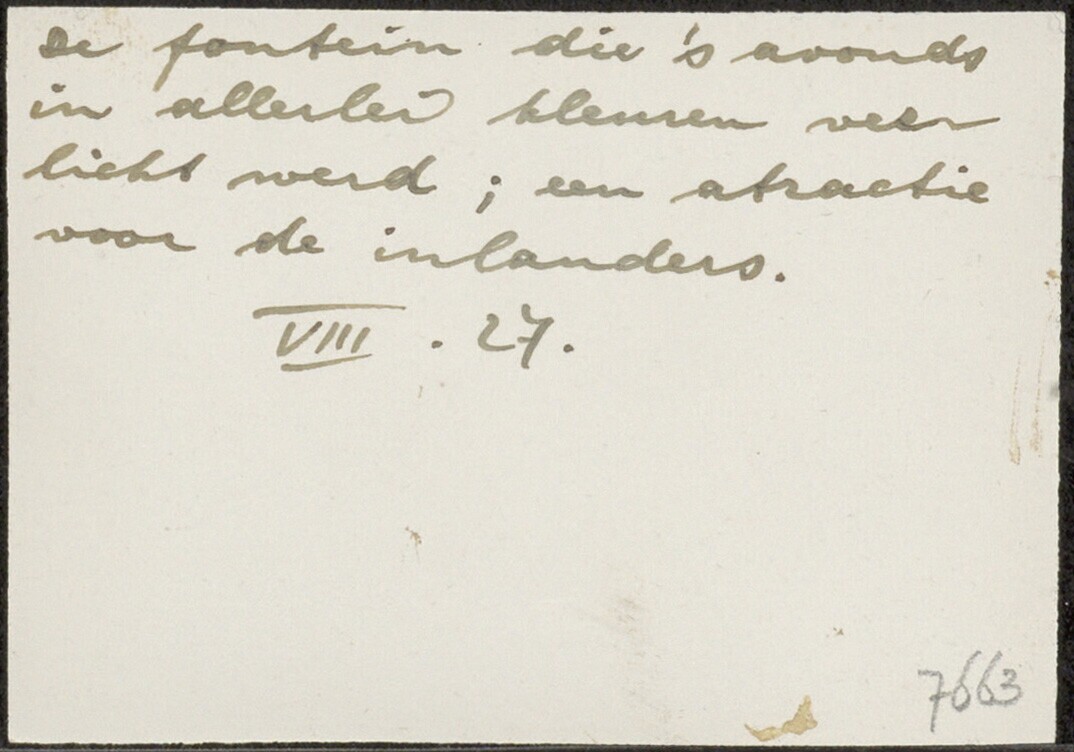 de fontein die 's avonds
in allerlei kleuren veer
licht werd ; een atractie
voor de inlanders.
VIII . 27.
7663